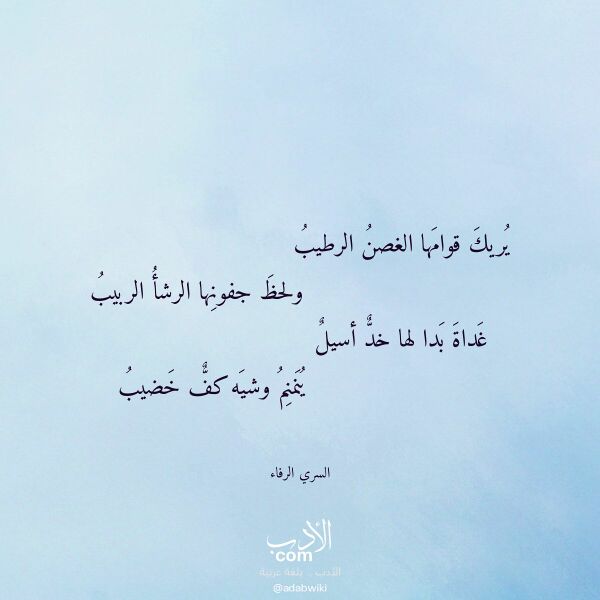 يُريكَ قوامَها الغصنُ الرطيبُ
ولحظَ جفونِها الرشأُ الربيبُ
غَداةَ بَدا لها خدٌّ أسيلٌ
يُنَمنِمُ وشيَه كفٌّ خَضيبُ
السري الرفاء
الأدب
com
الأدب .. بلغة عربية
@adabwiki